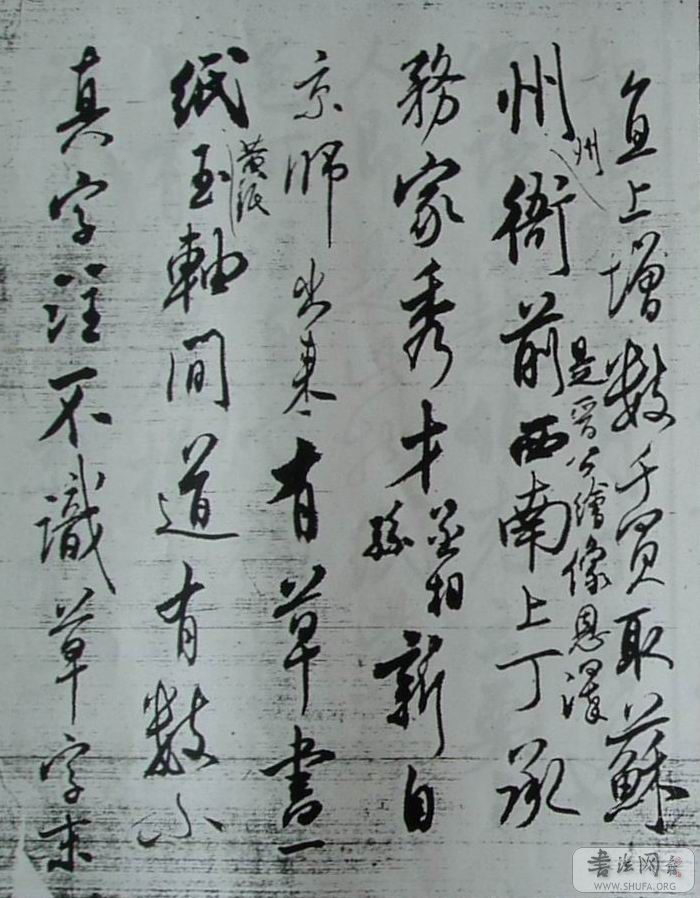 直上增數千買取蘇
州
是晉公繪像恩澤
州衙前西南上丁承
務家秀才丞相孫新自
京師出來有草書一
黃紙
紙玉軸間道有數小
真字注不識草字末
書法网
WWW.SHUFA.ORG